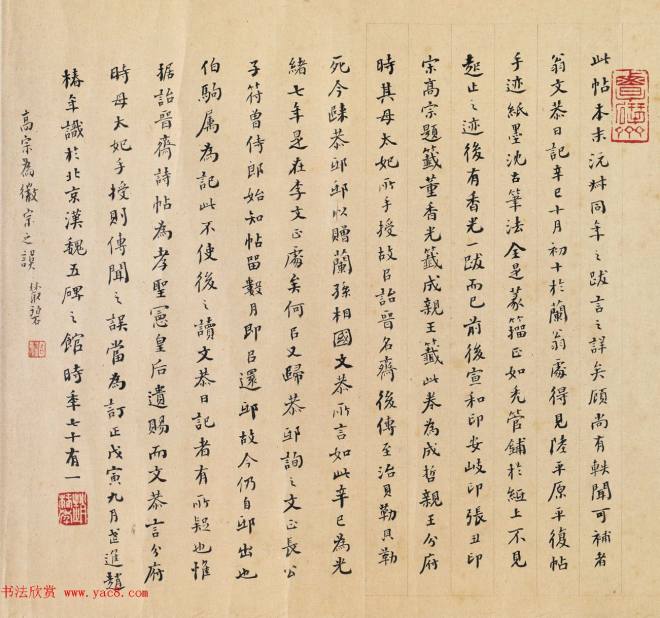 此帖本末沅叔同年之跋言之詳矣顧尚有軼聞可補者
翁文恭日記辛巳十月初十於蘭翁處得見陸平原平復帖
手迹紙墨沈古筆法全是篆籀正如禿管鋪於紙上不見
起止之迹後有香光一跋而已前後宣和印安岐印張丑印
宗高宗題籤董香光籤成親王籤此卷為成哲親王分府
時其母太妃所手授故以詒晉名齋後傳至治貝勒貝勒
死今歸恭邸邸以贈蘭孫相國文恭所言如此辛巳為光
緒七年是在李文正處矣何以又歸恭邸詢之文正長公
子符曾侍郎始知帖留數月即以還邸故今仍自邸出也
伯駒属為記此不使後之讀文恭日記者有所疑也惟
据詒晉齋詩帖為孝聖憲皇后遺賜而文恭言分府
時母太妃手授則傳聞之誤當為訂正戊寅九月茫進趙
椿年識於北京漢魏五碑之館時年七十有一
高宗為徽宗之誤
書法欣赏 www.yac8.com